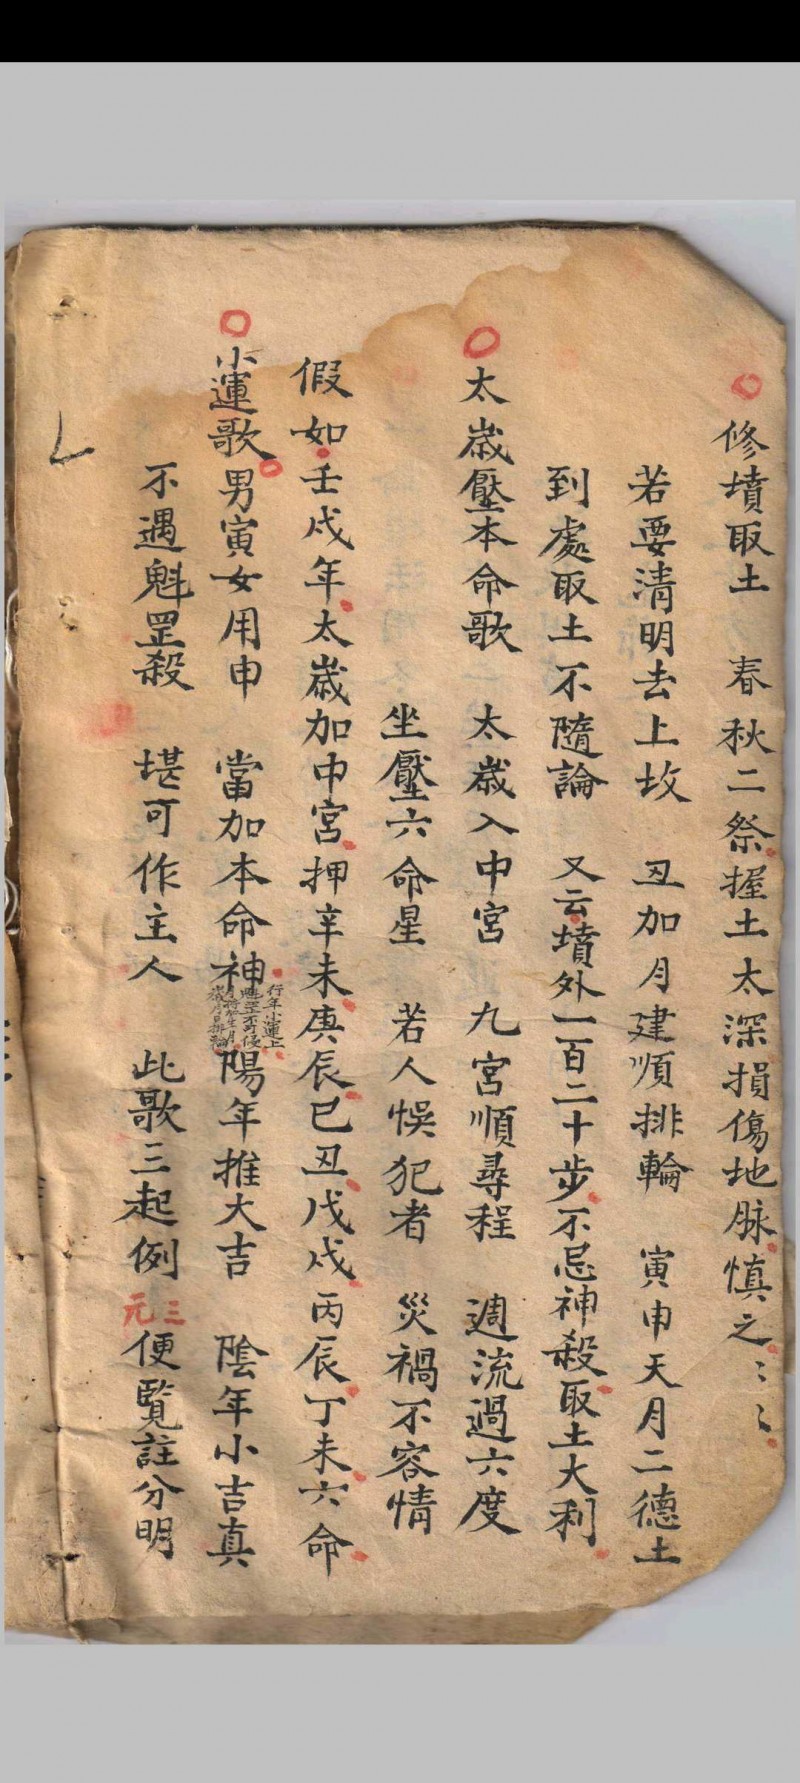 修墳取土　春秋二祭握土太深損傷地脉慎之〻〻
若要清明去上坟　丑加月建順排輪　寅申天月二德土
到處取土不隨論　又云墳外一百二十步不忌神殺取土大利
太歲壓本命歌　太歲入中宮　九宮順尋程　週流過六度
坐壓六命星　若人悞犯者　災禍不容情
假如壬戌年太歲加中宮押辛未庚辰己丑戊戌丙辰丁未六命
小運歌男寅女用申　當加本命神　陽年推大吉　陰年小吉真
行年小運上
魁罡不可侵
不遇魁罡殺　堪可作主人　此歌三起例　三元便覽註分明